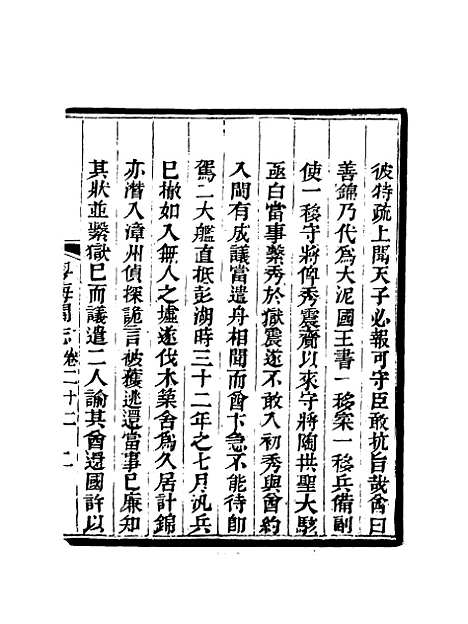 彼特疏上聞天子必報可守臣敢抗自哉酋曰
善錦乃代為大泥國王書一移案一移兵備副
使一移守將俾秀震齎以來守將陶拱聖大駭
亟白當事繫秀於獄震遂不敢入初秀與酋約
入閩有成議當遣舟相聞而酋卞急不能待即
駕二大艦直抵彭湖時三十二年之七月汛兵
已撤如入無人之墟遂伐木築舍為久居計錦
亦潛入漳州偵探詭言被獲逃還當事已廉知
其狀並繫獄已而議遣二人諭其酋還國許以
粵海關志卷二十二 二